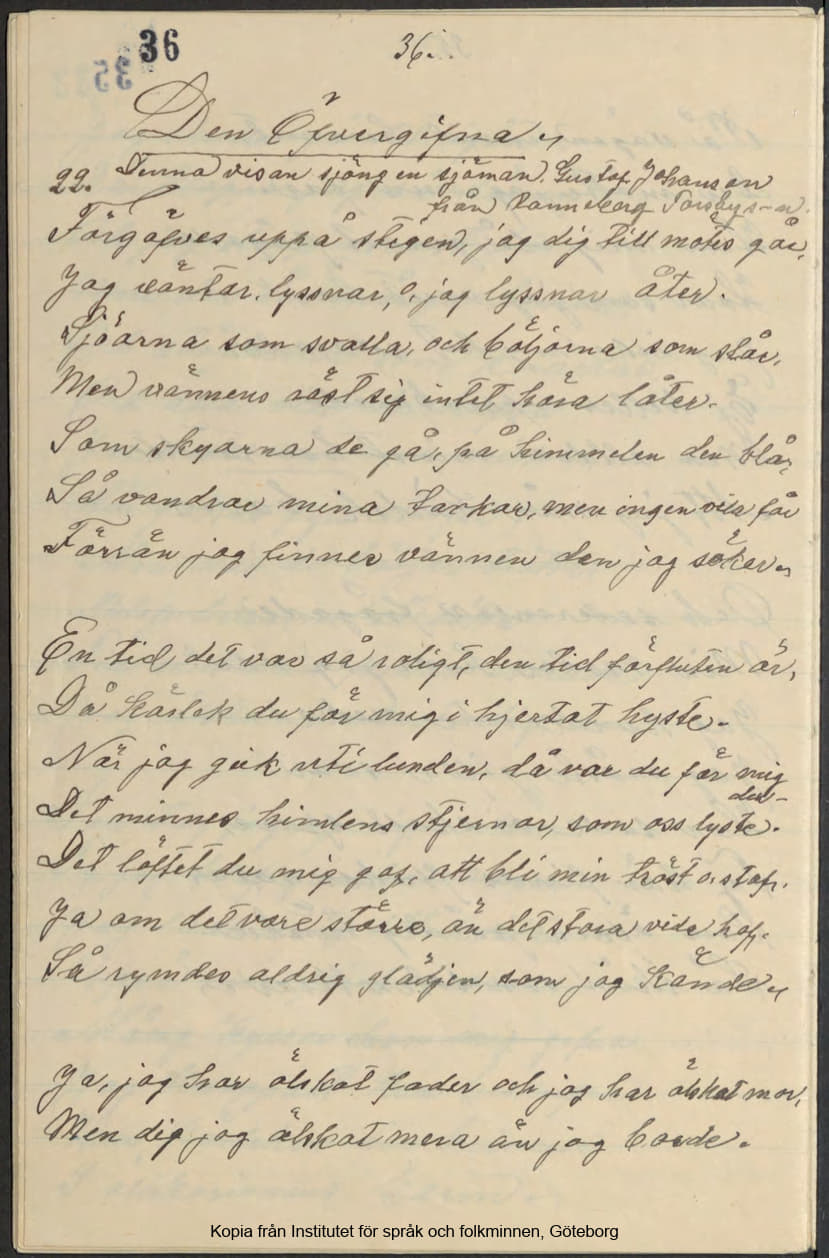 36
35
36.
Den Öfvergifna
22. Denna visan sjöng en sjöman. Gustaf Johanson
från Ranneberg Torsbys-n.
Förgäfves uppå stigen, jag dig till mötes går,
Jag väntar, lyssnar, o, jag lyssnar åter.
Sjöarna som svalla, och böljorna som slår,
Men vännens röst sig intet höra låter.
Som skyarna de gå, på himmelen den blå,
Så vandrar mina tankar, men ingen vila får
Förrän jag finner vännen den jag söker
En tid det var så roligt, den tid förfluten är,
Då kärlek du för mig i hjertat hyste.
När jag gick uti lunden, då var du för mig
Det minnes himlens stjernor, som oss lyste.
Det löftet du mig gaf, att bli min tröst o, staf.
Ja om det vore större, än det stora vida haf.
Så rymdes aldrig glädjen, som jag kände
Ja, jag har älskat fader och jag har älskat mor,
Men dig jag älskat mera än jag borde.
Kopia från Institutet för språk och folkminnen, Göteborg